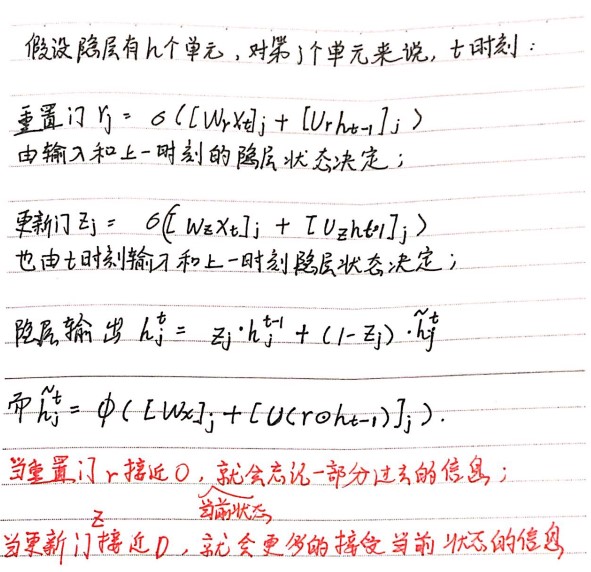 假设隐层有h个单元，对第j个单元来说，t时刻：
重置门 rj = σ([Wrxt]j + [Urht-1]j)
由输入和上一时刻的隐层状态决定；
更新门 zj = σ([Wzxt]j + [Uzht-1]j)
也由t时刻输入和上一时刻隐层状态决定；
隐层输出 hj^t = zj·hj^t-1 + (1-zj)·h̃j^t
而 h̃j^t = φ([Wx]j + [U(r⊙ht-1)]j).
当重置门r接近0，就会忘记一部分过去的信息；
当前状态
z
当更新门接近0，就会更多的接受当前状态的信息